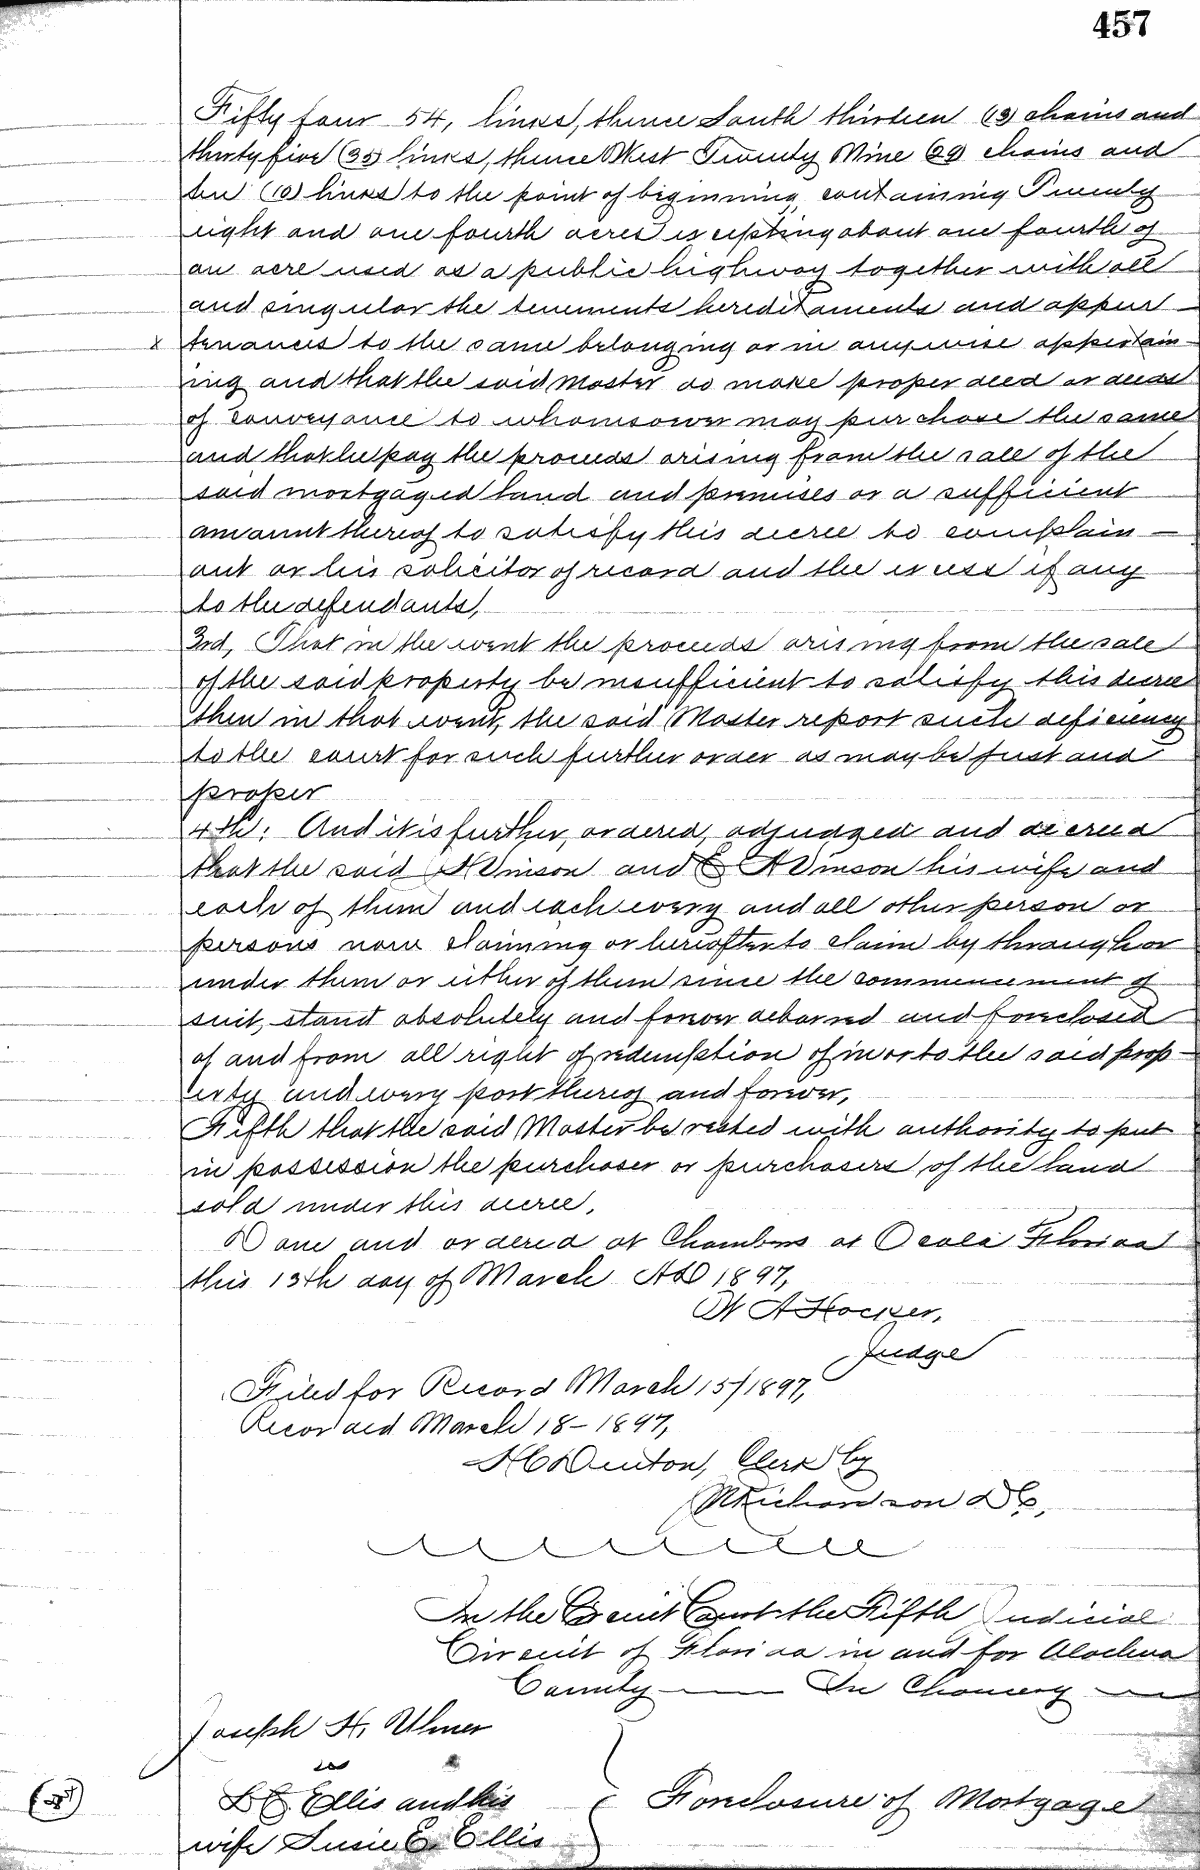 457
Fifty four 54, links, thence South thirteen (13) chains and
thirty five (35) links, thence West Twenty Nine (29) chains and
ten (10) links to the point of beginning, containing Twenty
eight and one fourth acres excepting about one fourth of
an acre used as a public highway together with all
and singular the tenements hereditaments and appur-
x tenances to the same belonging or in anywise appertain-
ing and that the said Master do make proper deed or deeds
of conveyance to whomsoever may purchase the same
and that he pay the proceeds arising from the sale of the
said mortgaged land and premises or a sufficient
amount thereof to satisfy this decree to complain-
ant or his solicitor of record and the excess if any
to the defendants,
3rd, That in the event the proceeds arising from the sale
of the said property be insufficient to satisfy this decree
then in that event, the said Master report such deficiency
to the court for such further order as may be just and
proper
4th: And it is further, ordered, adjudged and decreed
that the said Vinson and E A Vinson his wife and
each of them and each every and all other person or
persons now claiming or hereafter to claim by through or
under them or either of them since the commencement of
suit, stand absolutely and forever debarred and foreclosed
of and from all right of redemption of in or to the said prop-
erty and every part thereof and forever,
Fifth that the said Master be vested with authority to put
in possession the purchaser or purchasers of the land
sold under this decree,
Done and ordered at Chambers at Ocala Florida
this 13th day of March AD 1897,
W A Hocker,
Judge
Filed for Record March 15/1897,
Recorded March 18-1897,
H C Denton, Clerk by
Richardson D C,
In the Circuit Court the Fifth Judicial
Circuit of Florida in and for Alachua
County — In Chancery —
Joseph H. Ulmer
vs
Ellis and his
wife Susie E. Ellis
Foreclosure of Mortgage